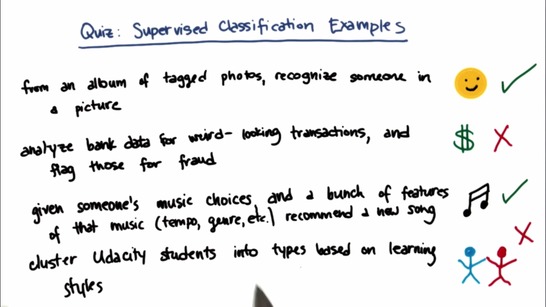 Quiz: Supervised Classification Examples
from an album of tagged photos, recognize someone in
a picture
analyze bank data for weird-looking transactions, and
flag those for fraud
$
given someone's music choices and a bunch of features
of that music (tempo, genre, etc.) recommend a new song
cluster Udacity students into types based on learning
styles